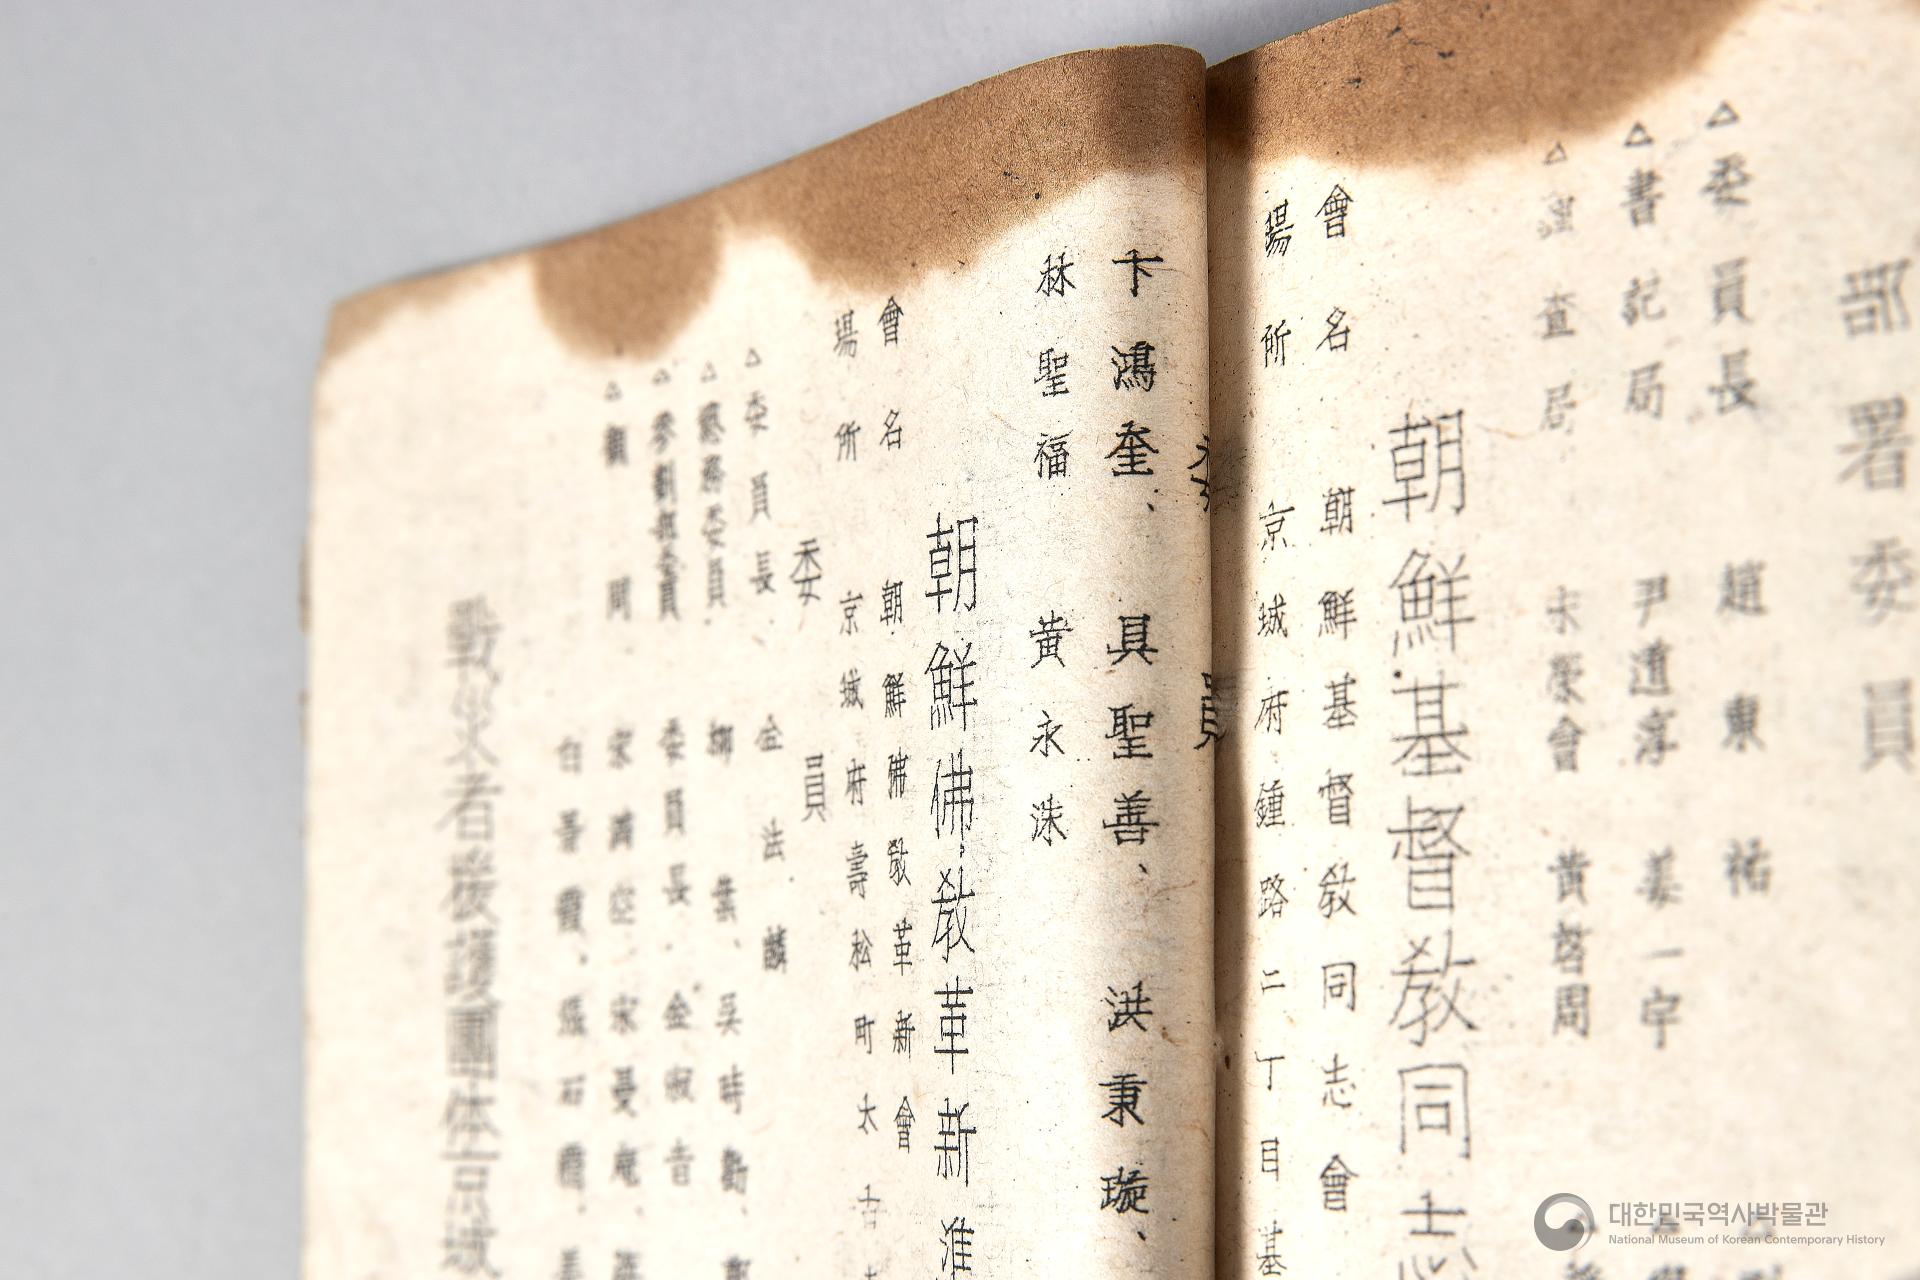 部署委員
△委員長 趙東祐
△書記局 尹道淳 姜一宇
△理査局
黃 周
朝鮮基督敎同志
會名 朝鮮基督敎同志會
場所 京城府鍾路二丁目基
委員
卞鴻奎、具聖善、洪秉璇、
林聖福 黃永洙
朝鮮佛敎革新準
會名 朝鮮佛敎革新會
場所 京城府壽松町太古
委員
△委員長 金法麟
△總務委員 柳葉、吳時勸、鄭
△參劃部委員 委員長 金
△顧問 宋滿空 宋曼庵、
白 霞、張石霜、姜
戰災者後護團体京城
대한민국역사박물관
National Museum of Korean Contemporary History